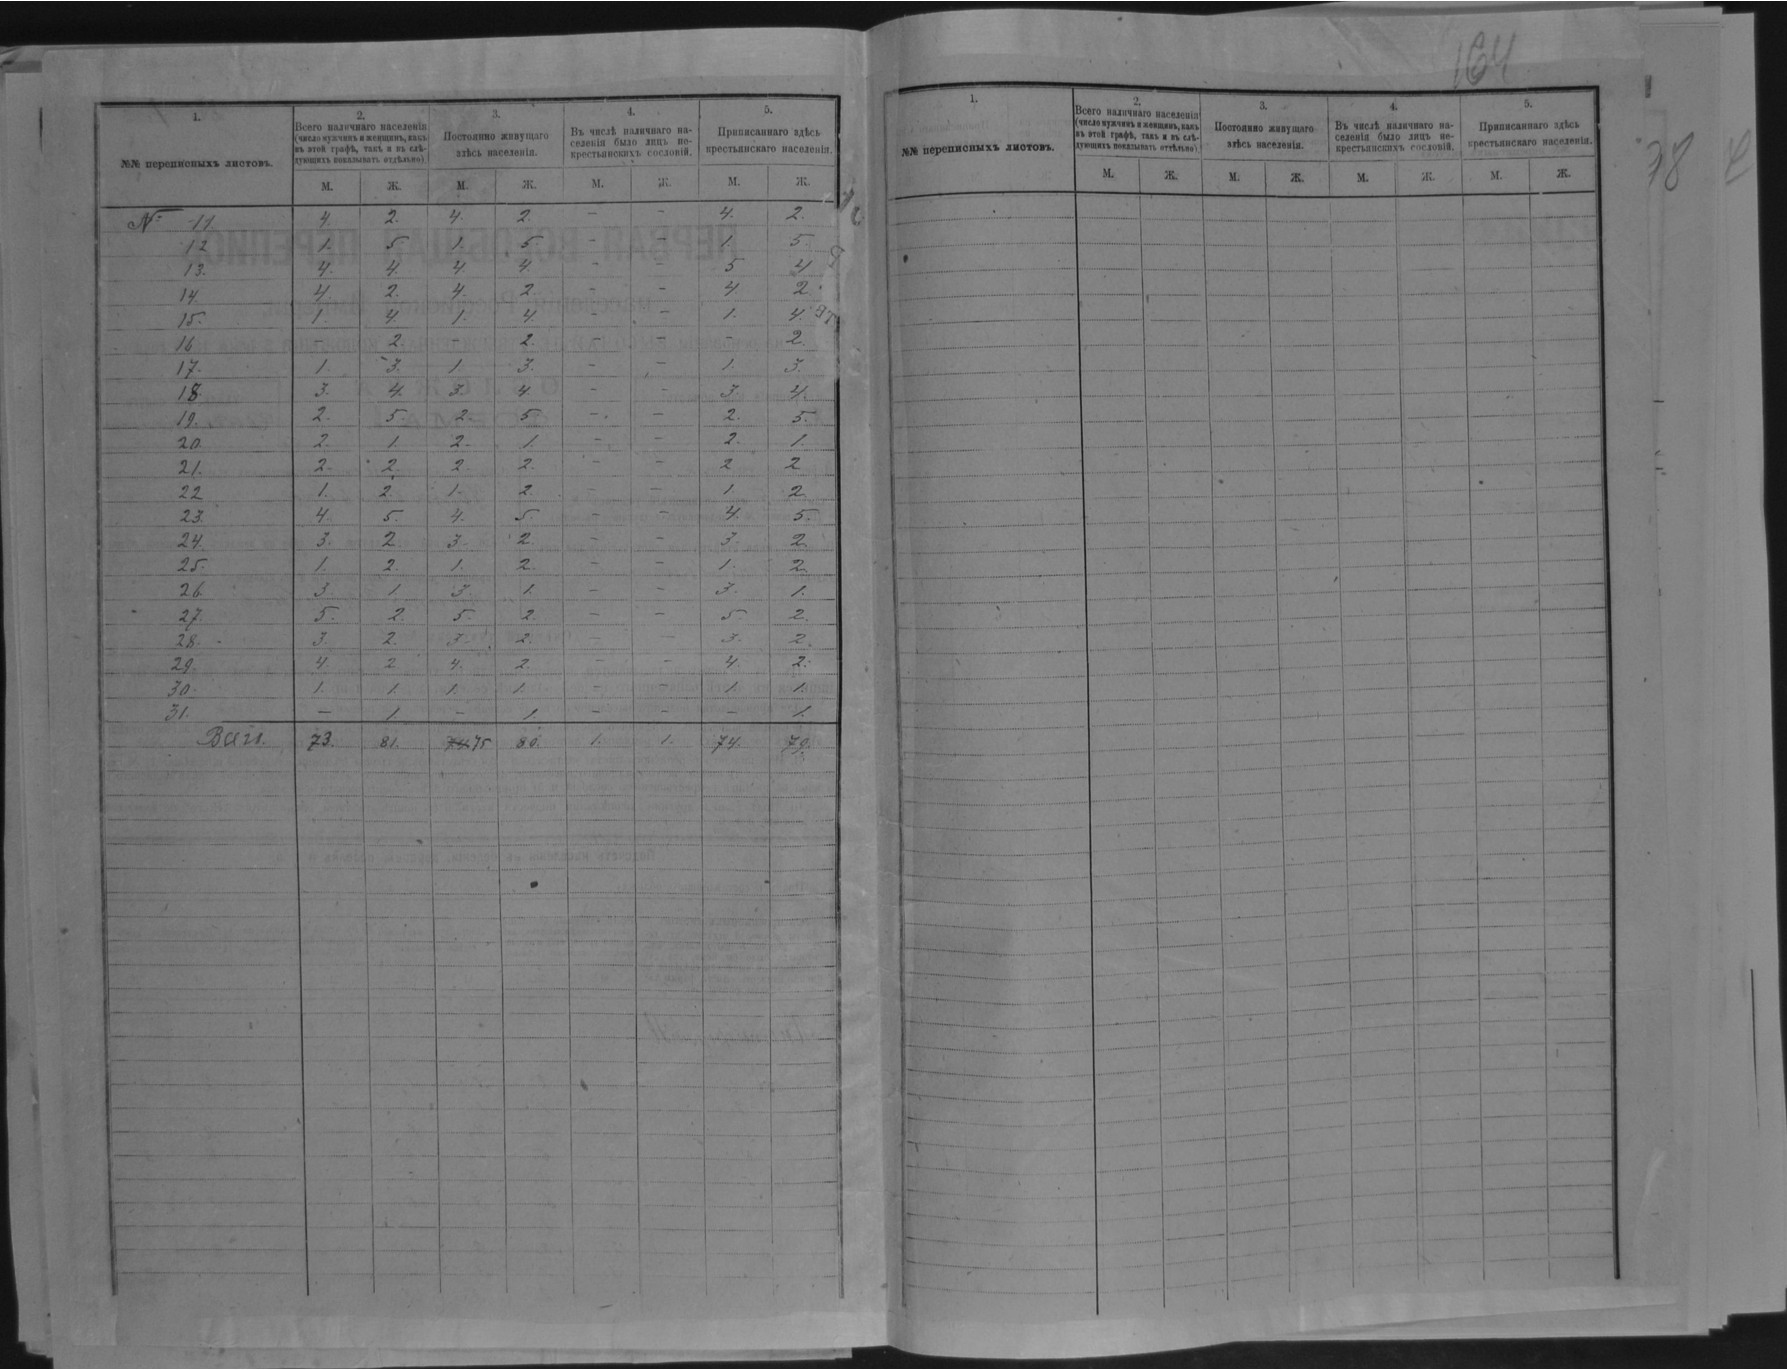 1.
2.
3.
4.
5.
№№ переписныхъ листовъ.
Всего наличнаго населенія (число мужчинъ и женщинъ, какъ въ этой графѣ, такъ и въ слѣдующихъ показывать отдѣльно)
Постоянно живущаго здѣсь населенія.
Въ числѣ наличнаго населенія было лицъ некрестьянскихъ сословій.
Приписаннаго здѣсь крестьянскаго населенія.
М. Ж. М. Ж. М. Ж. М. Ж.
№ 11. 4. 2. 4. 2. – – 4. 2.
12 1. 5. 1. 5. – – 1. 5.
13. 4. 4. 4. 4. – – 5 4
14. 4. 2. 4. 2. – – 4 2.
15. 1. 4. 1. 4. – – 1. 4.
16 – 2. – 2. – – – 2.
17. 1. 3. 1 3. – – 1. 3.
18. 3. 4. 3. 4. – – 3. 4.
19. 2. 5. 2. 5 – – 2. 5.
20 2. 1. 2. 1. – – 2. 1.
21. 2. 2. 2 2. – – 2 2
22 1. 2. 1. 2. – – 1. 2.
23. 4. 5. 4. 5. – – 4. 5.
24. 3. 2. 3. 2 – – 3. 2.
25. 1. 2. 1. 2. – – 1. 2.
26. 3 1. 3. 1. – – 3. 1.
27. 5. 2. 5. 2. – – 5. 2.
28. 3. 2. 3. 2. – – 3. 2.
29. 4. 2 4. 2. – – 4. 2.
30. 1. 1. 1. 1. – – 1. 1.
31. – 1. – 1. – – – 1.
Всего. 73. 81. 74 75 80. 1. 1. 74. 79.
164
1.
2.
3.
4.
5.
№№ переписныхъ листовъ.
Всего наличнаго населенія (число мужчинъ и женщинъ, какъ въ этой графѣ, такъ и въ слѣдующихъ показывать отдѣльно)
Постоянно живущаго здѣсь населенія.
Въ числѣ наличнаго населенія было лицъ некрестьянскихъ сословій.
Приписаннаго здѣсь крестьянскаго населенія.
М. Ж. М. Ж. М. Ж. М. Ж.